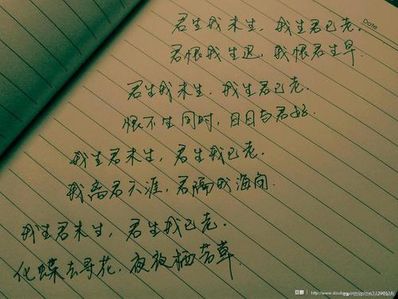 Date
君生我未生，我生君已老.
君恨我生迟，我恨君生早
君生我未生，我生君已老.
恨不生同时，日日与君好.
我生君未生，君生我已老.
我离君天涯，君隔我海角.
我生君未生，君生我已老.
化蝶去寻花，夜夜栖芳草.